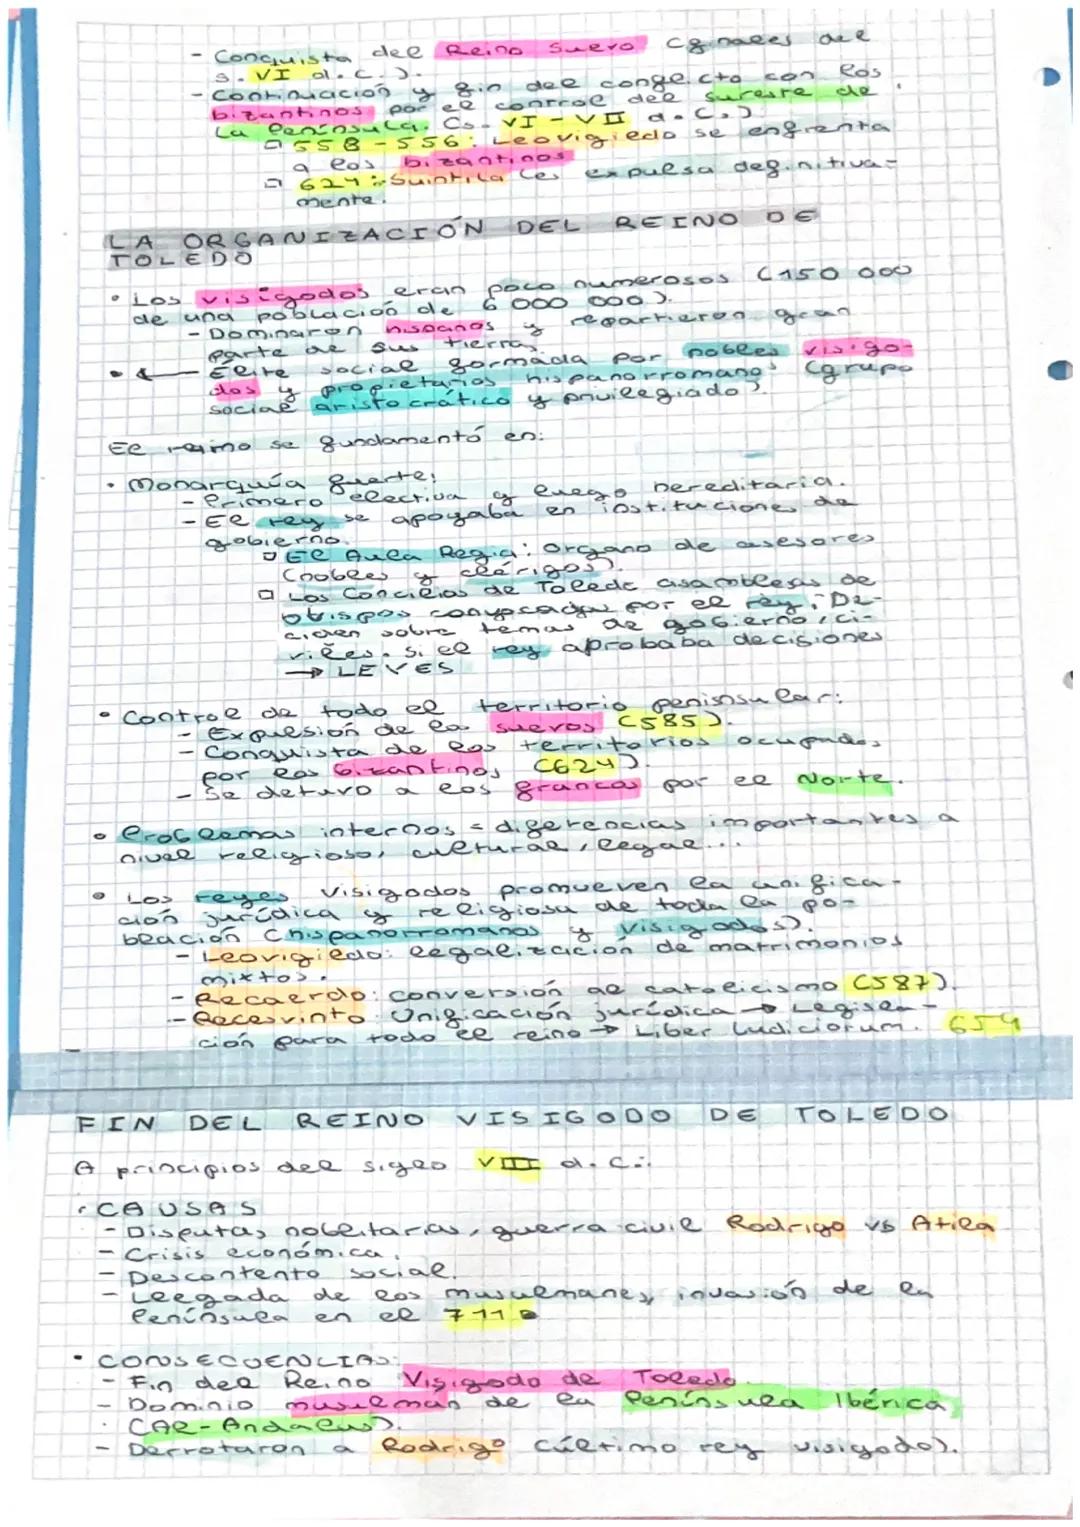 - Conquista del Reino Suevo (finales del
s. VI d.C.).
- Continuación y fin del conflicto con los
bizantinos por el control del sureste de
la Península. (s. VI - VII d.C.)
558-556: Leovigildo se enfrenta
a los bizantinos
624: Suintila les expulsa definitiva-
mente.
LA ORGANIZACIÓN DEL REINO DE
TOLEDO
• Los visigodos eran poco numerosos (150 000
de una población de 6 000 000).
- Dominaron hispanos y repartieron gran
parte de sus tierras
• ← Élite social formada por nobles visigo-
dos y propietarios hispanorromanos (grupo
social aristocrático y privilegiado).
El reino se fundamentó en:
• Monarquía fuerte:
- Primero electiva y luego hereditaria.
- El rey se apoyaba en instituciones de
gobierno.
El Aula Regia: Organo de asesores
(nobles y clérigos).
Los Concilios de Toledo asambleas de
obispos convocadas por el rey. De-
ciden sobre temas de gobierno, ci-
viles. Si el rey aprobaba decisiones
→ LEYES
• Control de todo el territorio penisnsular:
- Expulsión de los suevos (585).
- Conquista de los territorios ocupados
por los bizantinos (624).
- Se detuvo a los francos por el Norte.
• Problemas internos = diferencias importantes a
nivel religioso, cultural, legal...
• Los reyes visigodos promueven la unifica-
ción jurídica y religiosa de toda la po-
blación (hispanorromanos y visigodos).
- Leovigildo: legalización de matrimonios
mixtos.
- Recaerdo: conversión al catolicismo (587).
- Recesvinto: Unificación jurídica → Legisla-
ción para todo el reino → Liber Iudiciorum. 654
FIN DEL REINO VISIGODO DE TOLEDO
A principios del siglo VIII d.C.:
• CAUSAS
- Disputas nobeitarias, guerra civil Rodrigo vs Atila
- Crisis económica.
- Descontento social.
- Llegada de los musulmanes, invasión de la
Península en el 711
• CONSECUENCIAS:
- Fin del Reino Visigodo de Toledo.
- Dominio musulmán de la Península Ibérica
(Al-Andalus).
- Derrotaron a Rodrigo (último rey visigodo).